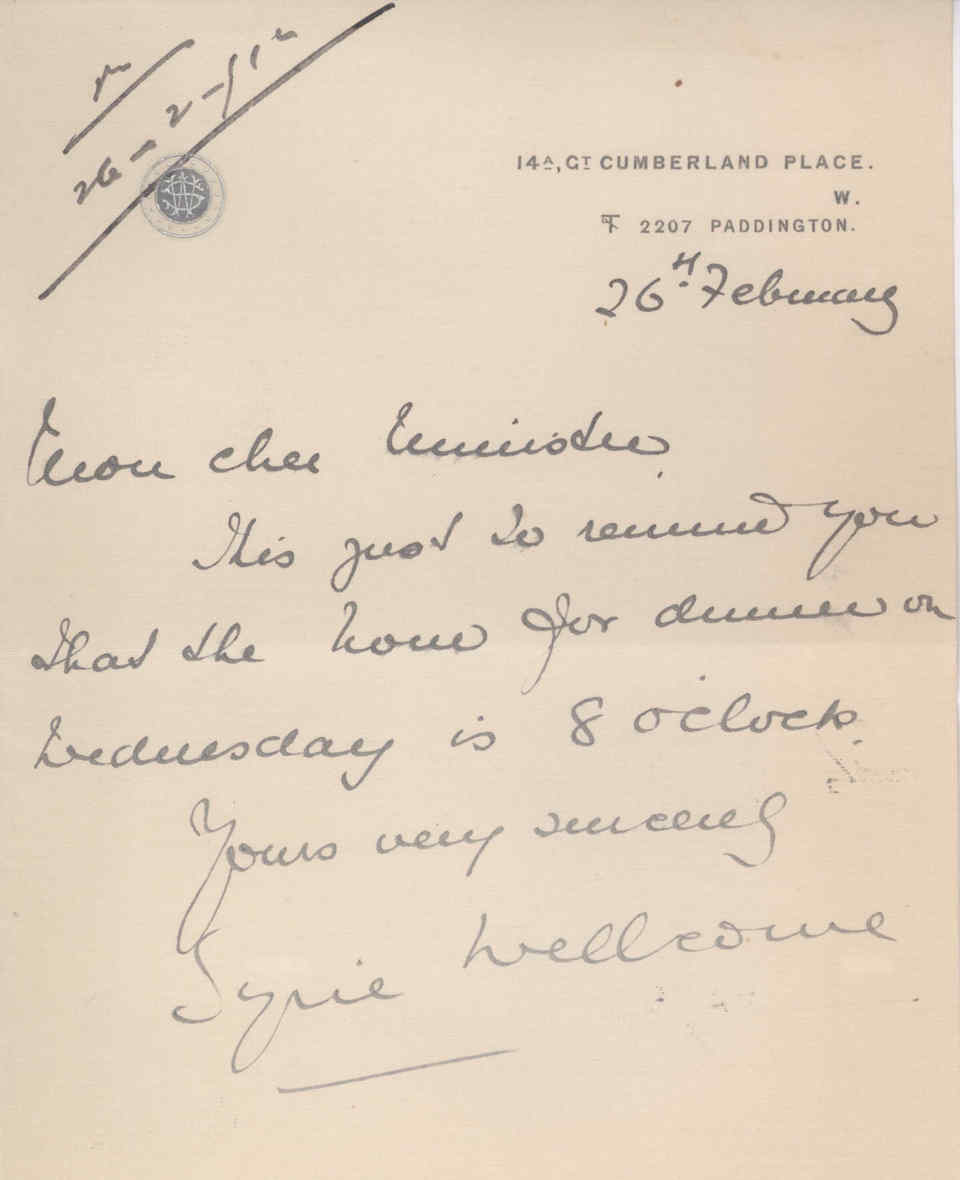 26 - 2 -
14A, GT CUMBERLAND PLACE.
W.
T 2207 PADDINGTON.
26th February
Mon cher Ministre
This just to remind you
that the hour for dinner on
Wednesday is 8 o'clock.
Yours very sincerely
Syrie Wellcome